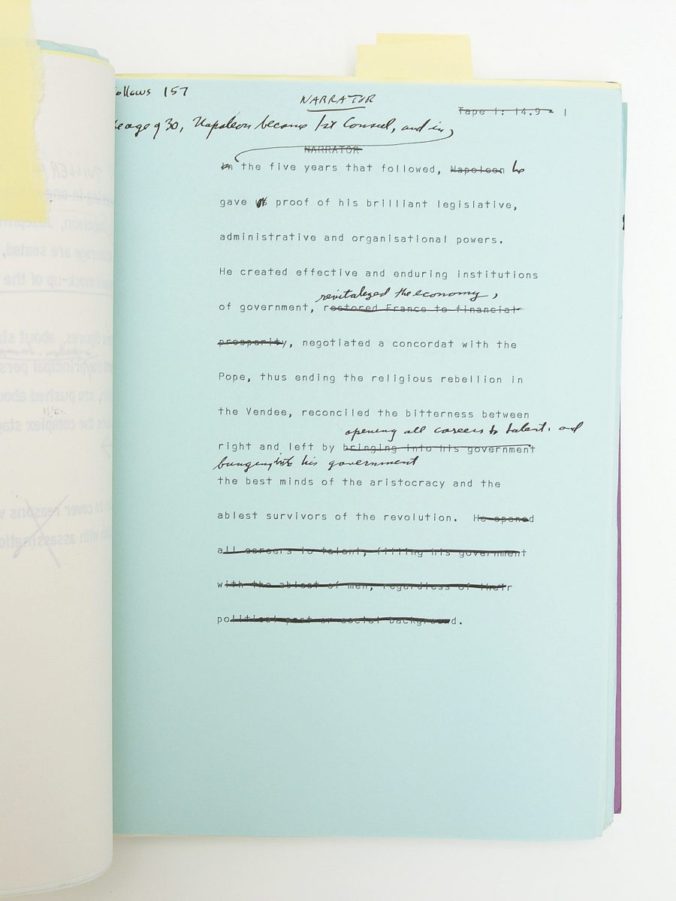 follows 157
NARRATOR
Tape 1: 14.9 - 1
age of 30, Napoleon became 1st Consul, and in,
NARRATOR
In the five years that followed, Napoleon he
gave proof of his brilliant legislative,
administrative and organisational powers.
He created effective and enduring institutions
revitalized the economy,
of government, restored France to financial
prosperity, negotiated a concordat with the
Pope, thus ending the religious rebellion in
the Vendee, reconciled the bitterness between
opening all careers to talent, and
right and left by bringing into his government
bringing into his government
the best minds of the aristocracy and the
ablest survivors of the revolution. He opened
all careers to talent, filling his government
with the ablest of men, regardless of their
political past or social background.